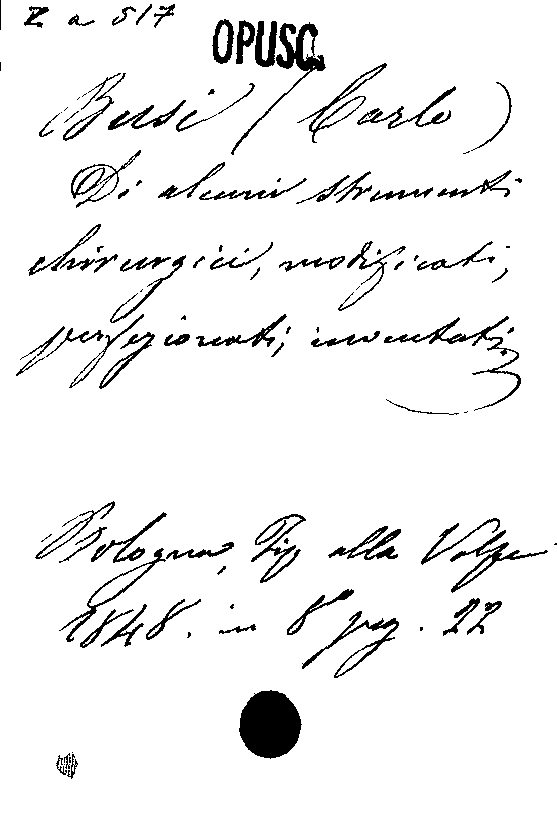 Z a 517
OPUSC.
Busi (Carlo)
Di alcuni strumenti
chirurgici, modificati,
perfezionati, inventati
Bologna, Tip alla Volpe
1848. in 8° pag. 22